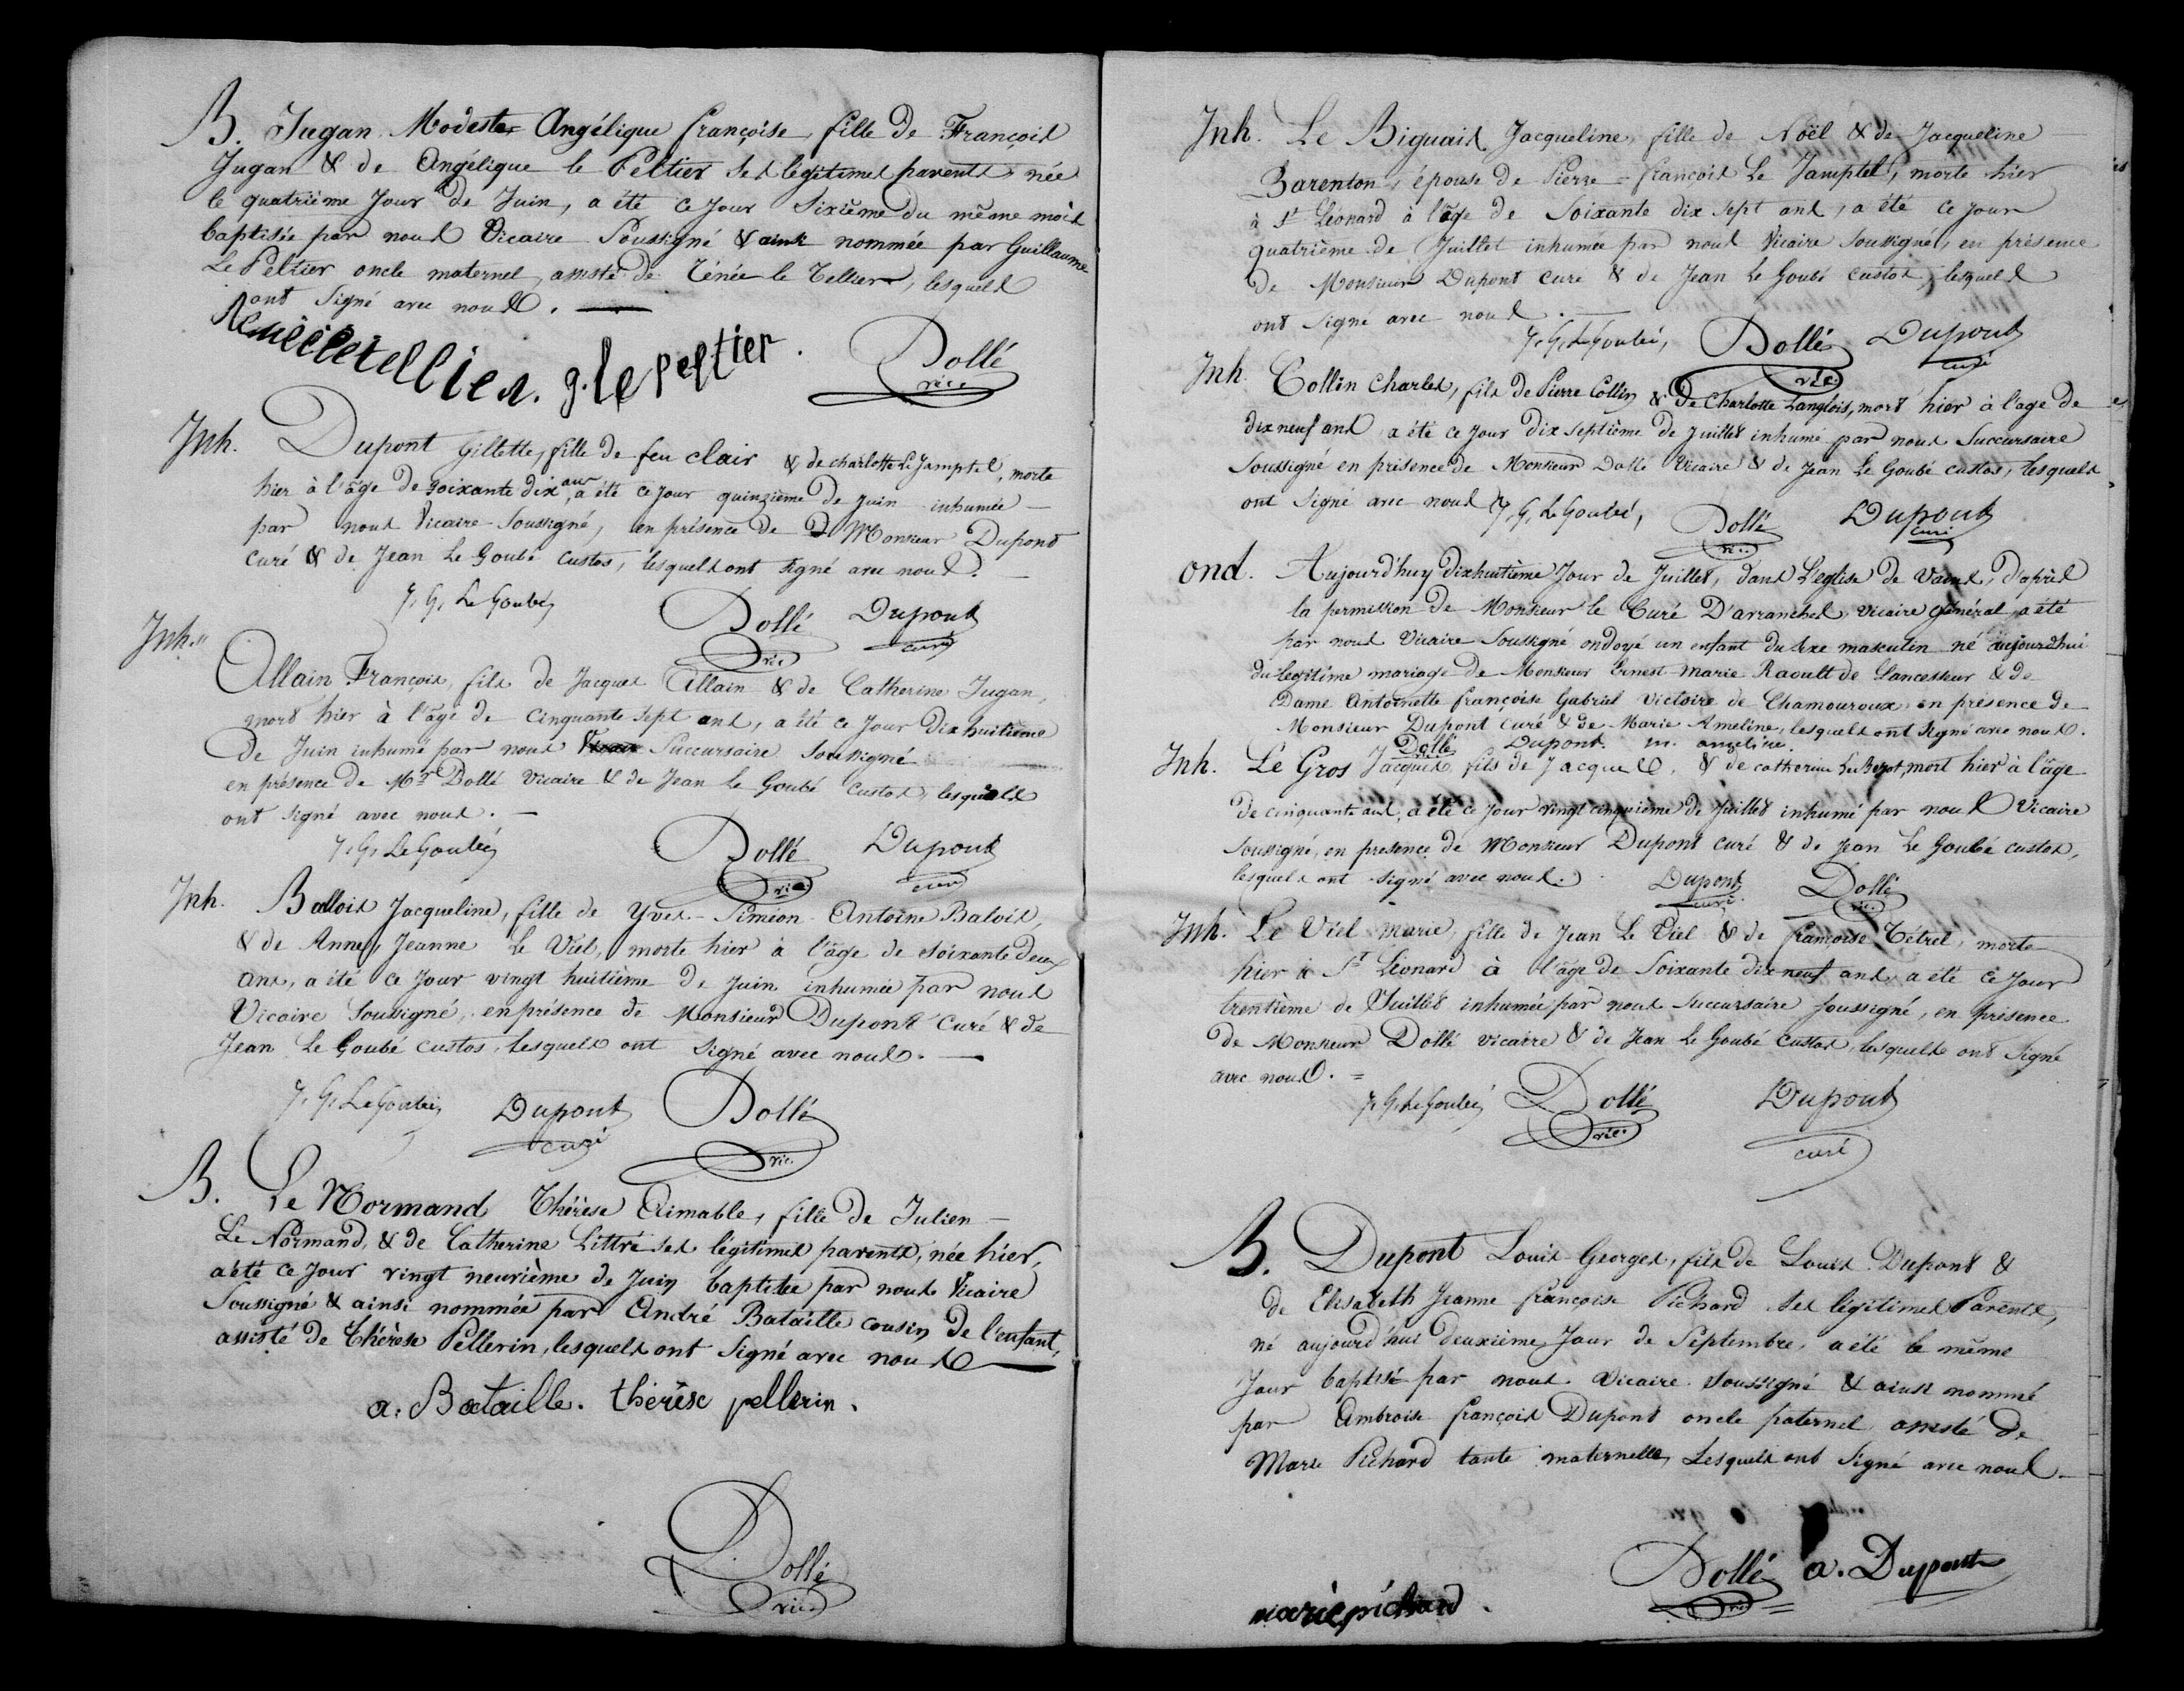 B. Jugan Modeste Angélique françoise fille de François
Jugan & de Angélique le Peltier ses légitimes parents, née
le quatrième Jour de Juin, a été ce jour Sixième du même mois
baptisée par nous Vicaire Soussigné & ainsi nommée par Guillaume
Le Peltier oncle maternel, assisté de Rénée le Tellier, lesquels
ont Signé avec nous.
Renée letellier. g. le peltier. Dollé
vic.
Inh. Dupont Gillette, fille de feu clair & de charlotte Le Jamptel, morte
hier à l'âge de soixante dix ans, a été ce jour quinzième de Juin inhumée
par nous Vicaire Soussigné, en présence de Monsieur Dupont
curé & de Jean Le Goubé custos, lesquels ont signé avec nous.
J. G. Le Goubé, Dollé Dupont
vic curé
Inh. Allain François, fils de Jacques Allain & de Catherine Jugan,
mort hier à l'âge de cinquante sept ans, a été ce jour dix huitième
de Juin inhumé par nous Succursaire Soussigné
en présence de Mr Dollé vicaire & de Jean Le Goubé custos, lesquels
ont signé avec nous.
J. G. Le Goubé, Dollé Dupont
vic. curé
Inh. Ballois Jacqueline, fille de Yves-Siméon-Antoine Balois,
& de Anne, Jeanne Le Viel, morte hier à l'âge de soixante deux
ans, a été ce jour vingt huitième de Juin inhumée par nous
Vicaire Soussigné, en présence de Monsieur Dupont curé & de
Jean Le Goubé custos, lesquels ont signé avec nous.
J. G. Le Goubé, Dupont Dollé
curé vic.
B. Le Normand Thérèse Aimable, fille de Julien
Le Normand, & de Catherine Littré ses légitimes parents, née hier,
a été ce jour vingt neuvième de Juin baptisée par nous Vicaire
Soussigné & ainsi nommée par André Bataille cousin de l'enfant,
assisté de Thérèse Pellerin, lesquels ont signé avec nous
a. Bataille. thérèse pellerin.
Dollé
vic.
Inh. Le Biguais Jacqueline, fille de Noël & de Jacqueline
Barenton, épouse de Pierre-françois Le Jamptel, morte hier
à St Léonard à l'âge de Soixante dix sept ans, a été ce jour
quatrième de Juillet inhumée par nous Vicaire Soussigné, en présence
de Monsieur Dupont curé & de Jean Le Goubé custos, lesquels
ont signé avec nous.
J. G. Le Goubé, Dollé Dupont
vic. curé
Inh. Collin Charles, fils de Pierre Collin & de Charlotte Langlois, mort hier à l'age de
dix neuf ans a été ce jour dix septième de Juillet inhumé par nous Succursaire
Soussigné en présence de Monsieur Dollé Vicaire & de Jean Le Goubé custos, lesquels
ont signé avec nous J. G. Le Goubé, Dollé Dupont
vic. curé
ond. Aujourd'huy dixhuitième Jour de Juillet, dans L'eglise de Vains, d'après
la permission de Monsieur le Curé D'avranches, vicaire général, a été
par nous Vicaire Soussigné ondoyé un enfant du sexe masculin né aujourdhui
du légitime mariage de Monsieur Ernest-Marie Raoult de Lancesseur & de
Dame Antoinette françoise Gabriel Victoire de Chamouroux, en présence de
Monsieur Dupont curé & de Marie Ameline, lesquels ont signé avec nous.
Dollé Dupont. m. ameline.
Inh. Le Gros Jacques, fils de Jacques, & de catherine, mort hier à l'âge
de cinquante ans, a été ce jour vingt cinquième de juillet inhumé par nous Vicaire
Soussigné, en presence de Monsieur Dupont curé & de Jean Le Goubé custos,
lesquels ont signé avec nous. Dupont Dollé
curé. vic.
Inh. Le Viel Marie, fille de Jean Le Viel & de françoise Tétrel, morte
hier à St Léonard à l'âge de Soixante dix neuf ans, a été ce jour
trentième de Juillet inhumée par nous Succursaire soussigné, en présence
de Monsieur Dollé vicaire & de Jean Le Goubé custos, lesquels ont signé
avec nous.
J. G. Le Goubé, Dollé Dupont
vic. curé
B. Dupont Louis-Georges, fils de Louis Dupont &
de Elisabeth Jeanne françoise Pichard ses légitimes Parents,
né aujourd'hui deuxième Jour de Septembre, a été le même
Jour baptisé par nous Vicaire Soussigné & ainsi nommé
par Ambroise françois Dupont oncle paternel assisté de
Marie Pichard tante maternelle, Lesquels ont signé avec nous.
Dollé a. Dupont
vic.
marie pichard.